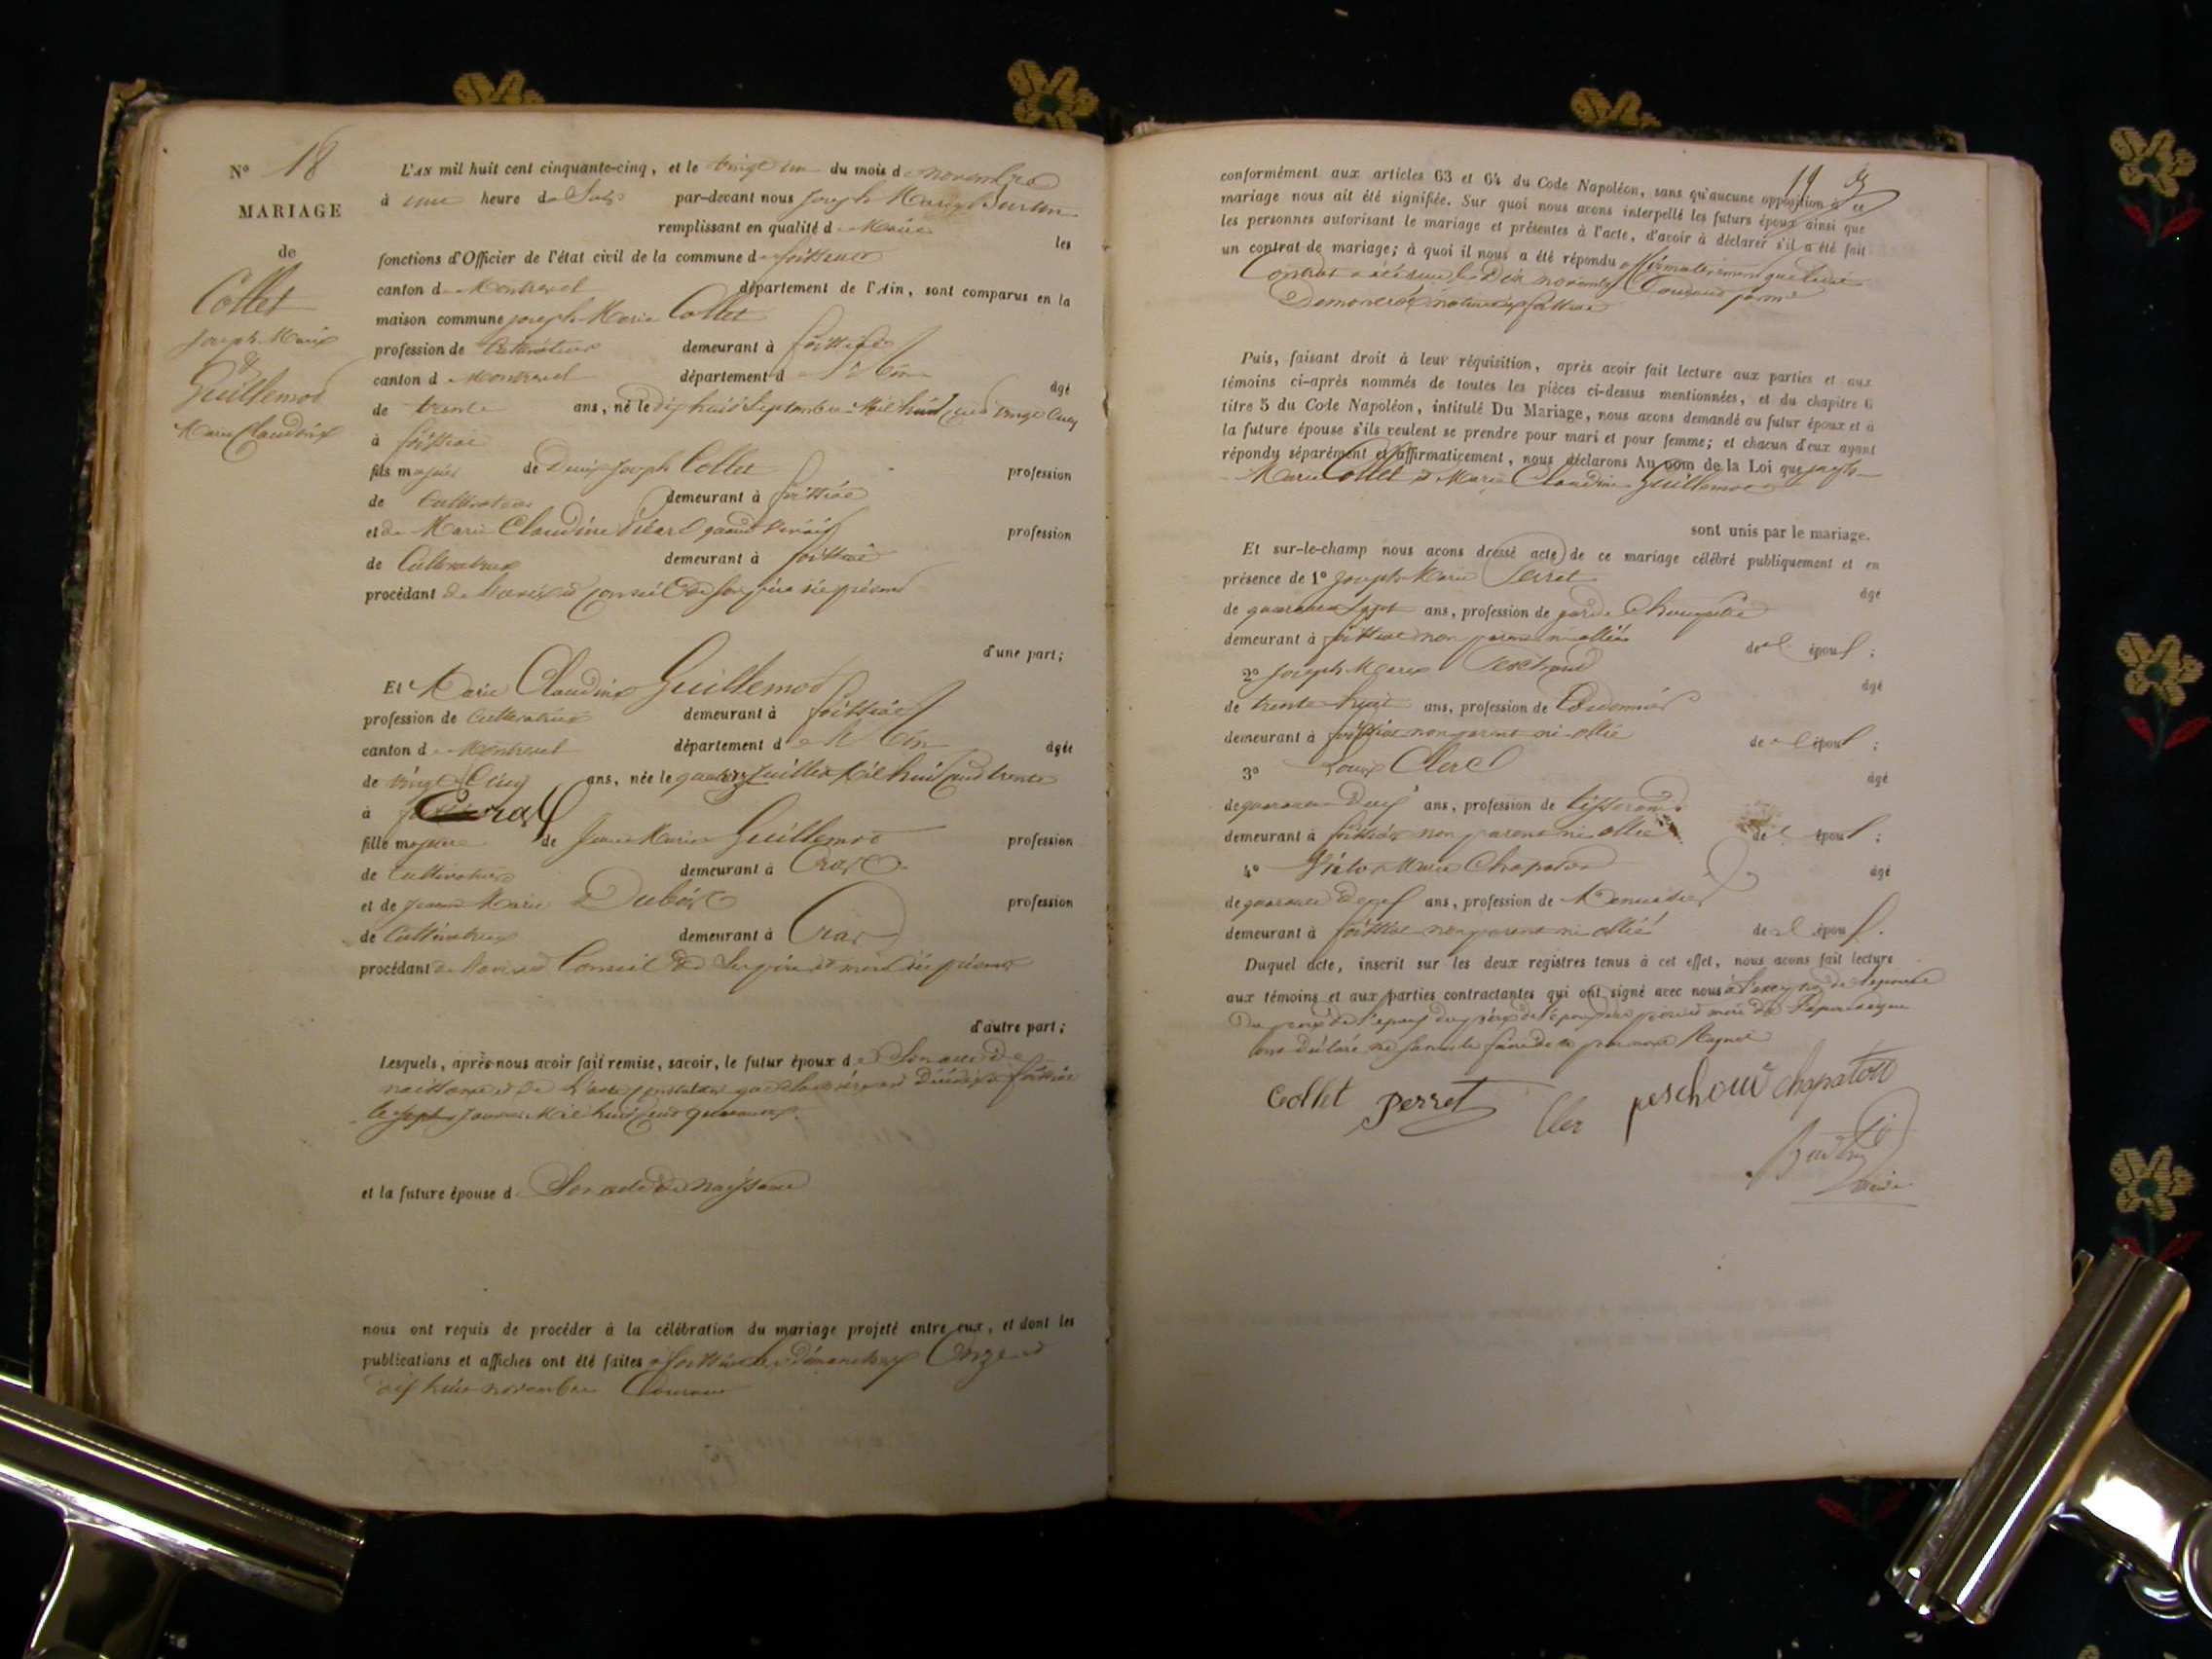 N° 18
MARIAGE
de
Collet
Joseph Marie
&
Guillemot
Marie Claudine
L'AN mil huit cent cinquante-cinq, et le vingt un du mois de novembre
à une heure de Soir par-devant nous Joseph Marie
remplissant en qualité de Maire les
fonctions d'Officier de l'état civil de la commune de foissiat
canton de Montrevel département de l'Ain, sont comparus en la
maison commune joseph Marie Collet
profession de Cultivateur demeurant à foissiat
canton de Montrevel département de l'Ain âgé
de trente ans, né le dix huit Septembre Mil huit cent vingt Cinq
à foissiat
fils majeur de Denis Joseph Collet profession
de Cultivateur demeurant à foissiat
et de Marie Claudine quand vivait profession
de Cultivatrice demeurant à foissiat
procédant de l'avis et Conseil de son père ici présent
d'une part;
Et Marie Claudine Guillemot
profession de Cultivatrice demeurant à foissiat
canton de Montrevel département de l'Ain âgée
de vingt Cinq ans, née le quatorze Juillet Mil huit cent trente
à Cras
fille majeure de Jean Marie Guillemot profession
de Cultivateur demeurant à Cras
et de Jeanne Marie Dubois profession
de Cultivatrice demeurant à Cras
procédant de l'avis et Conseil de Ses père et mère ici présents
d'autre part;
Lesquels, après nous avoir fait remise, savoir, le futur époux de Son acte de
naissance et de l'acte constatant que sa mère est Décédée à foissiat
le sept Janvier Mil huit cent quarante
et la future épouse de Son acte de naissance
nous ont requis de procéder à la célébration du mariage projeté entre eux, et dont les
publications et affiches ont été faites à foissiat les Dimanches Onze et
dix huit novembre Courant
conformément aux articles 63 et 64 du Code Napoléon, sans qu'aucune opposition à ce
mariage nous ait été signifiée. Sur quoi nous avons interpellé les futurs époux ainsi que
les personnes autorisant le mariage et présentes à l'acte, d'avoir à déclarer s'il a été fait
un contrat de mariage; à quoi il nous a été répondu affirmativement que ledit
Contrat a été reçu le Dix novembre Courant par me
notaire à foissiat
Puis, faisant droit à leur réquisition, après avoir fait lecture aux parties et aux
témoins ci-après nommés de toutes les pièces ci-dessus mentionnées, et du chapitre 6
titre 5 du Code Napoléon, intitulé Du Mariage, nous avons demandé au futur époux et à
la future épouse s'ils veulent se prendre pour mari et pour femme; et chacun d'eux ayant
répondu séparément et affirmativement, nous déclarons Au nom de la Loi que joseph
Marie Collet et Marie Claudine Guillemot
sont unis par le mariage.
Et sur-le-champ nous avons dressé acte de ce mariage célébré publiquement et en
présence de 1° Joseph Marie Perret âgé
de quarante Sept ans, profession de garde Champêtre
demeurant à foissiat non parent ni allié de l'époux;
2° Joseph Marie âgé
de trente huit ans, profession de Cordonnier
demeurant à foissiat non parent ni allié de l'époux;
3° Louis Clerc âgé
de quarante Deux ans, profession de tisserand
demeurant à foissiat non parent ni allié de l'époux;
4° Victor Marie Chapaton âgé
de quarante Deux ans, profession de Menuisier
demeurant à foissiat non parent ni allié de l'époux.
Duquel acte, inscrit sur les deux registres tenus à cet effet, nous avons fait lecture
aux témoins et aux parties contractantes qui ont signé avec nous à l'exception de l'épouse
du père de l'époux des père et mère de l'épouse qui
ont déclaré ne savoir le faire de ce requis
Collet Perret Cler peschoux chapaton
maire